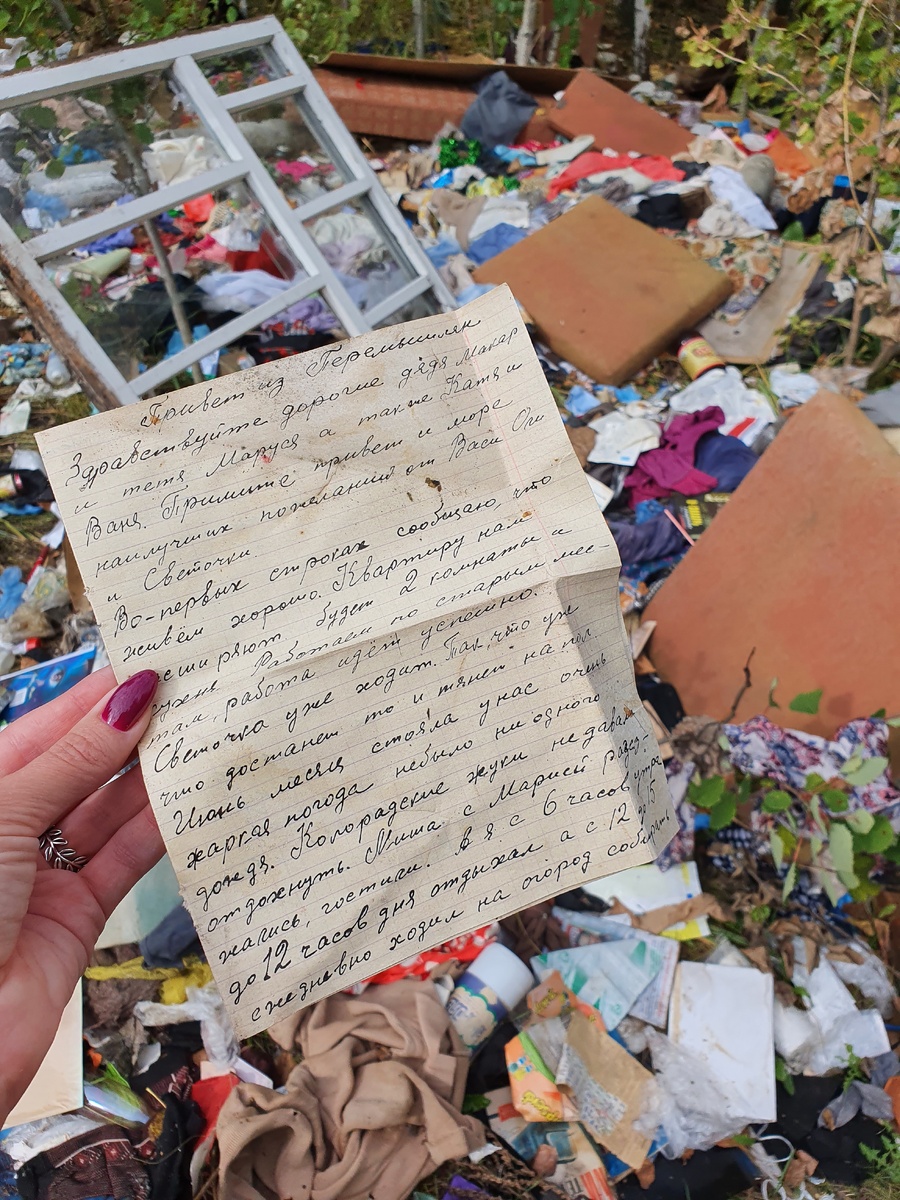 Привет из Перемышлян
Здравствуйте дорогие дядя Макар
и тетя Маруся а также Катя и
Ваня. Примите привет и море
наилучших пожеланий от Васи Оли
и Светочки.
Во-первых строках сообщаю, что
живём хорошо. Квартиру нам
расширяют будет 2 комнаты и
кухня. Работаем по старым мес-
там, работа идёт успешно.
Светочка уже ходит. Так, что уж
что достанет то и тянет на пол
Июнь месяц стояла у нас очень
жаркая погода небыло ни одного
дождя. Колорадские жуки не давали
отдохнуть. Миша с Марисей разез-
жались, гостили. А я с 6 часов утра
до 12 часов дня отдыхал а с 12 до 15
ежедневно ходил на огород собирать